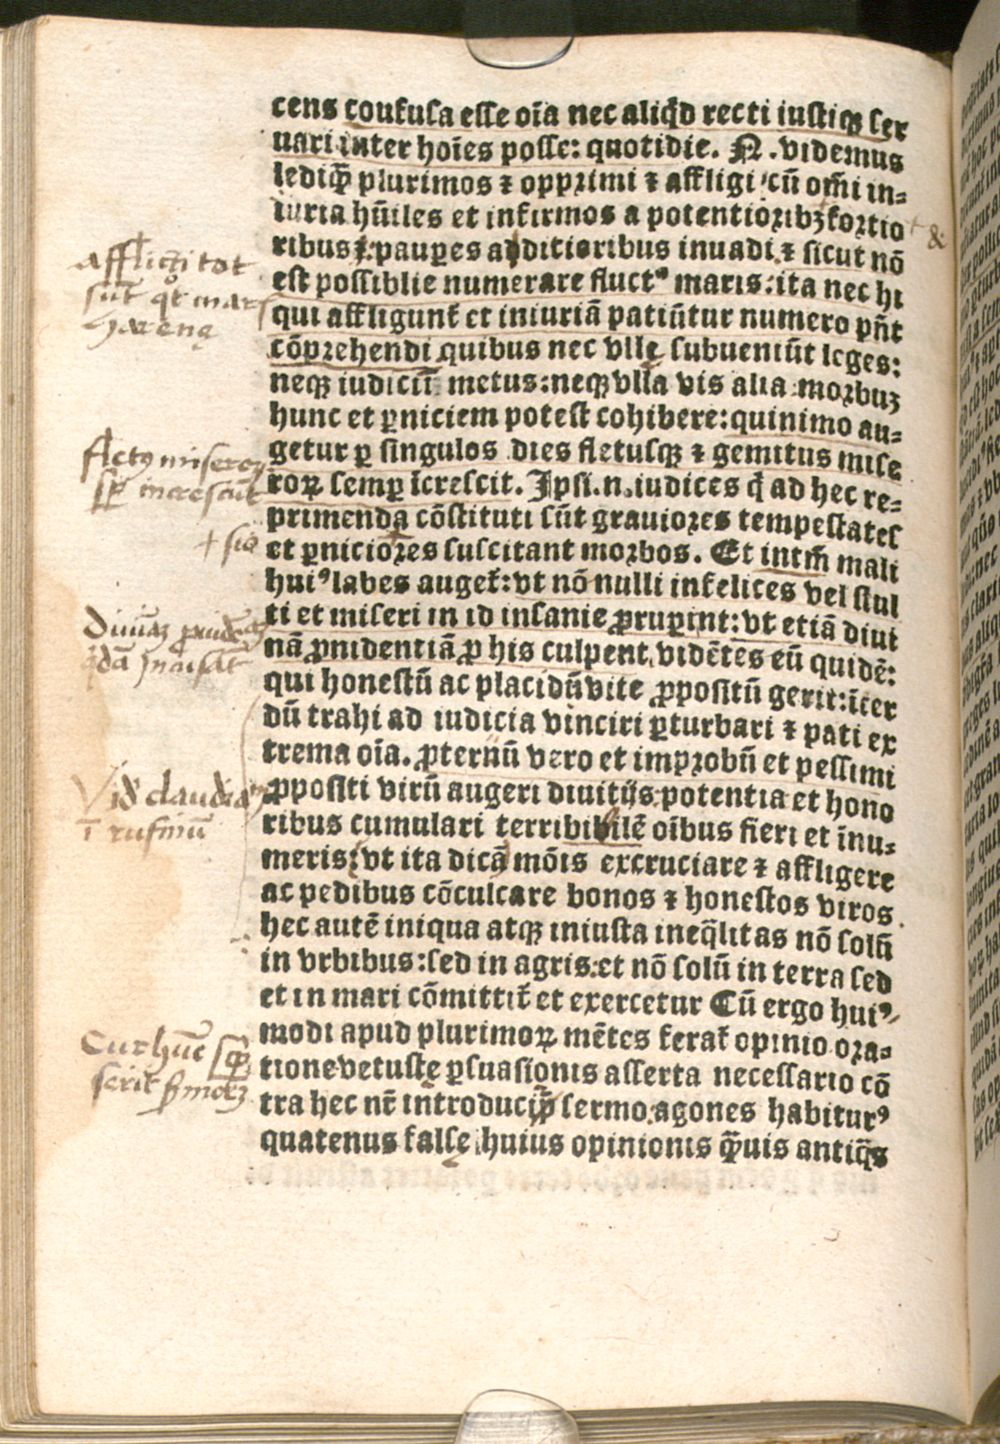 cens confusa esse oīa nec aliqd̄ recti iustiqꝫ ser
uari inter hoīes posse: quotidie. N̄. videmus
lediqꝫ plurimos ⁊ opprimi ⁊ affligi cū om̄i in-
iuria hūiles et infirmos a potentioribꝫ fortio
&
ribus pauꝑes a dditioribus inuadi ⁊ sicut nō
est possiblie numerare fluctꝰ maris: ita nec hi
qui affligunt̄ et iniuriā patiūtur numero pn̄t
cōprehendi quibus nec vllę subueniūt leges:
neqꝫ iudiciū metus: neqꝫ vlla vis alia morbuꝫ
hunc et ꝑniciem potest cohibere: quinimo au-
getur ꝑ singulos dies fletusqꝫ ⁊ gemitus mise
roꝝ semꝑ īcrescit. Ipsi. n. iudices q̄ ad hec re-
primenda cōstituti sūt grauiores tempestates
et ꝑniciores suscitant morbos. Et intm̄ mali
huiꝰ labes auget̄: vt nō nulli infelices vel stul
ti et miseri in id insanie ꝓrupīnt: vt etiā diui
nā ꝓnidentiā ꝓ his culpent, vidētes eū quidē:
qui honestū ac placidū vite ꝓpositū gerit: īter
dū trahi ad iudicia vinciri ꝑturbari ⁊ pati ex
trema oīa. ꝓteruū vero et improbū et pessimi
ꝓpositi virū augeri diuitijs potentia et hono
ribus cumulari terribibilē oībus fieri et īnu-
meris: vt ita dicā mōis excruciare ⁊ affligere
ac pedibus cōculcare bonos ⁊ honestos viros
hec autē iniqua atqꝫ iniusta ineq̄litas nō solū
in vrbibus: sed in agris: et nō solū in terra sed
et in mari cōmittit̄ et exercetur Cū ergo huiꝰ-
modi apud plurimoꝝ mētes ferat̄ opinio ora-
tione vetustę ꝑsuasionis asserta necessario cō
tra hec nr̄e introducimꝰ sermo agones habiturꝰ
quatenus falsę huius opinionis q̄uis antiq̄s
Afflicti tot
sūt qt̄ mar̄
harenę
fletꝰ miseroꝝ
sꝑ increscūt
+ sio
Diuinā ꝓuidentiā
qdā incusāt
Vid̄ claudianū
ī rufinū
Cur hūc
scripserit sermonē